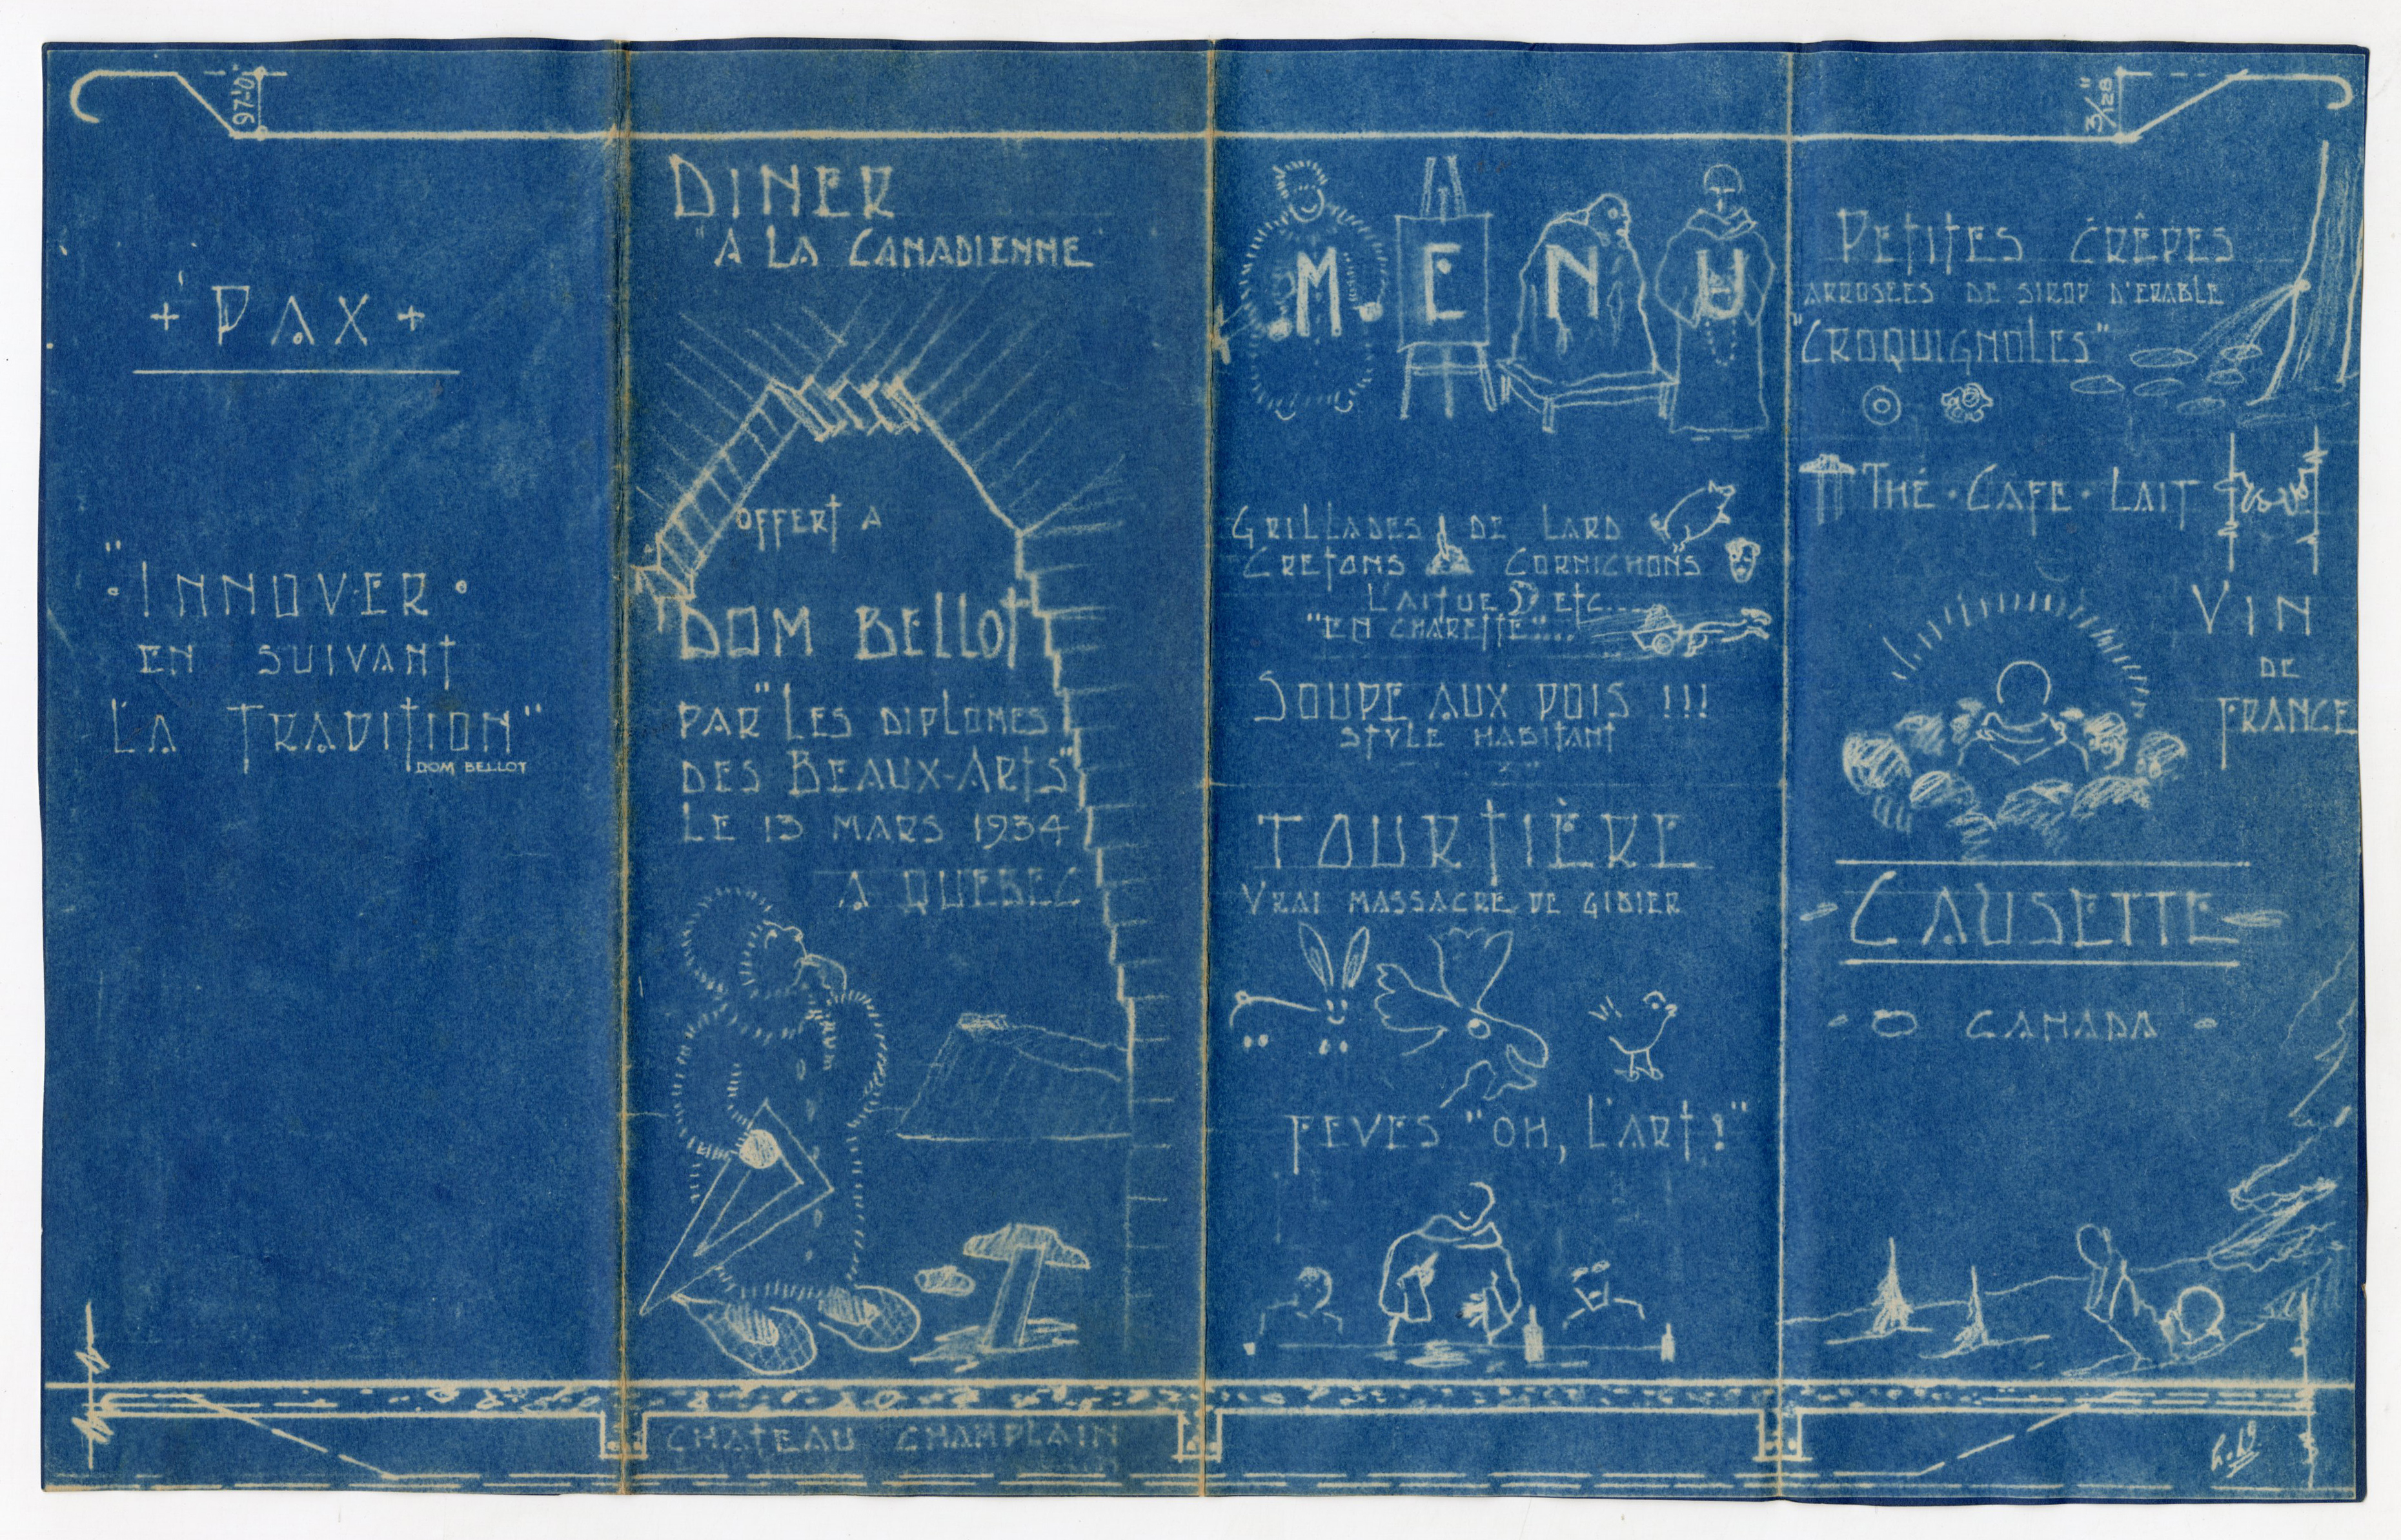 97'-0"
+ PAX +
"INNOVER
EN SUIVANT
LA TRADITION"
DOM BELLOT
DINER
"A LA CANADIENNE"
OFFERT A
DOM BELLOT
PAR "LES DIPLOMES
DES BEAUX-ARTS"
LE 13 MARS 1934
A QUEBEC
CHATEAU CHAMPLAIN
MENU
GRILLADES DE LARD
CRETONS CORNICHONS
LAITUE ETC....
"EN CHARETTE"...
SOUPE AUX POIS !!!
STYLE HABITANT
TOURTIÈRE
VRAI MASSACRE DE GIBIER
FEVES "OH, L'ART!"
3/128"
PETITES CRÊPES
ARROSEES DE SIROP D'ERABLE
"CROQUIGNOLES"
THÉ · CAFE · LAIT
VIN
DE
FRANCE
- CAUSETTE -
- O CANADA -